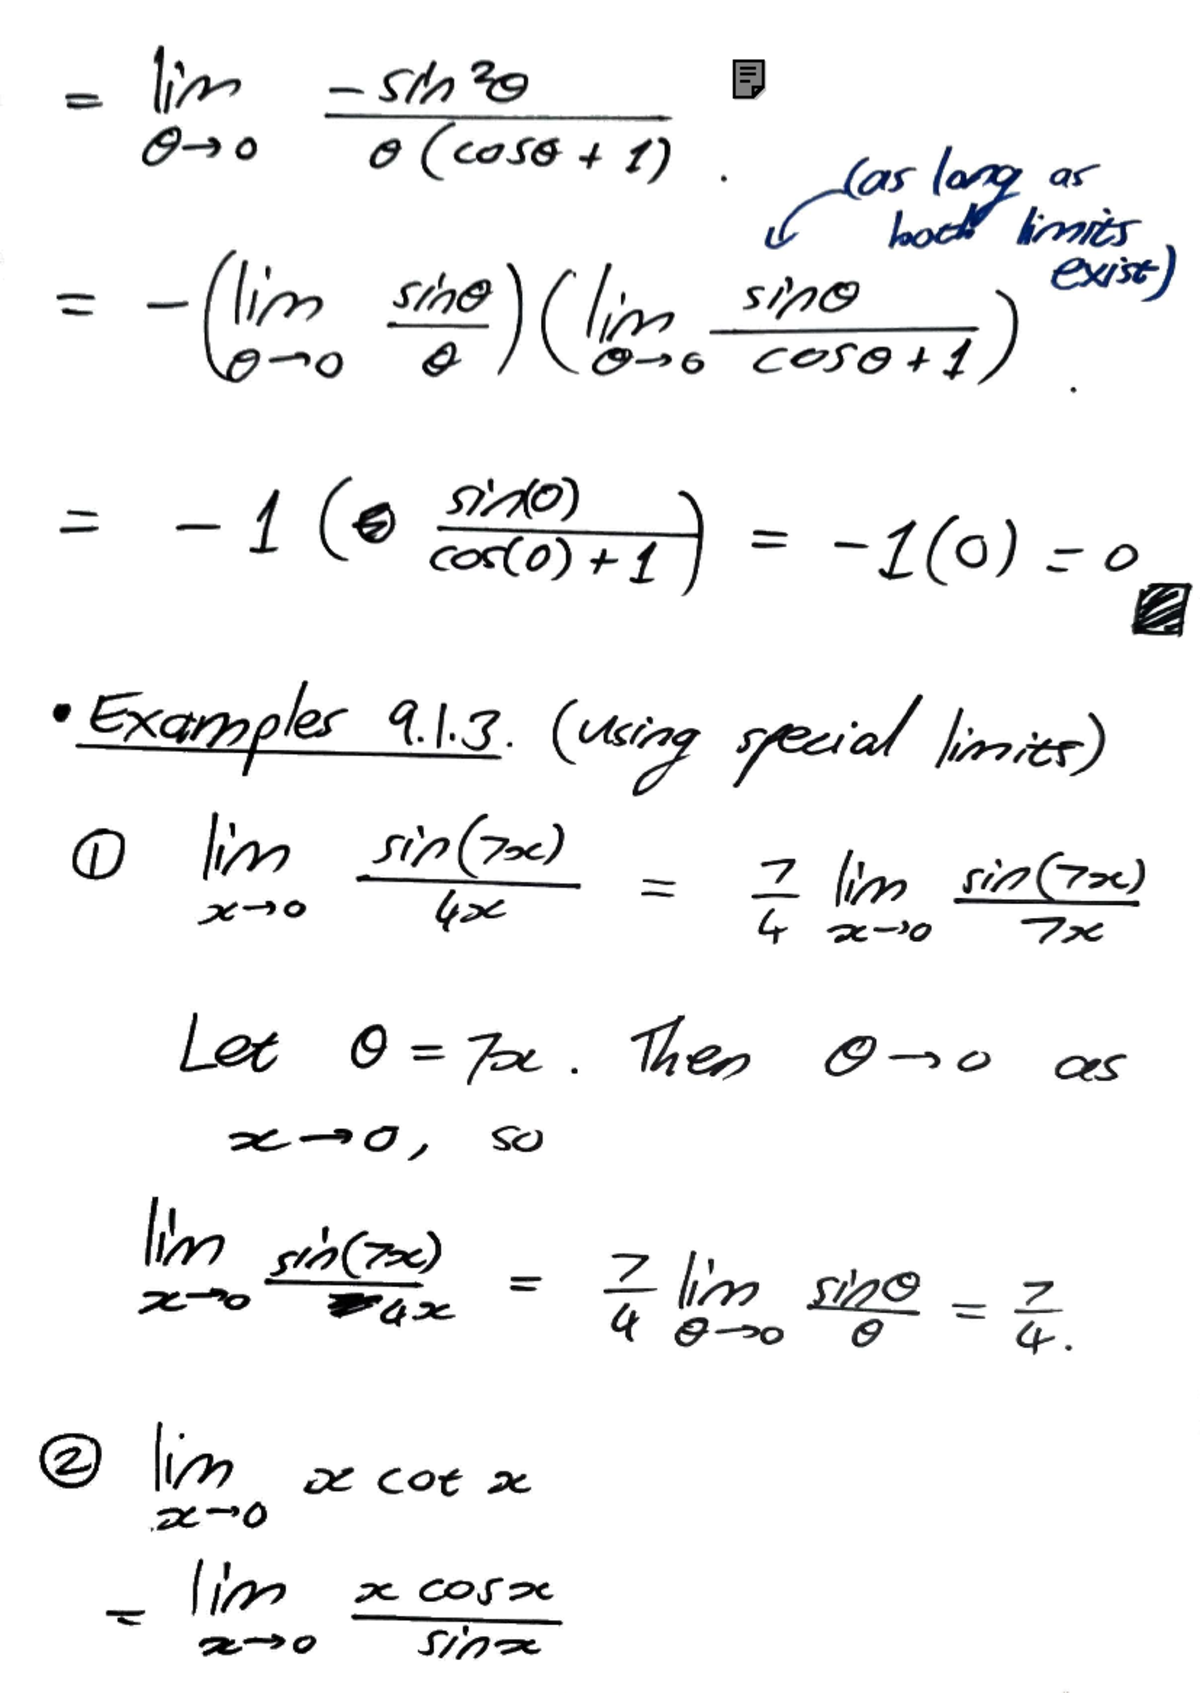 = lim θ→0 -sin²θ / θ(cosθ + 1) .
(as long as
both limits
exist)
= -(lim θ→0 sinθ/θ)(lim θ→0 sinθ / cosθ + 1) .
= -1 ( sin(0) / cos(0) + 1 ) = -1(0) = 0
• Examples 9.1.3. (using special limits)
① lim x→0 sin(7x)/4x = 7/4 lim x→0 sin(7x)/7x
Let θ = 7x. Then θ→0 as
x→0, so
lim x→0 sin(7x)/4x = 7/4 lim θ→0 sinθ/θ = 7/4.
② lim x→0 x cot x
= lim x→0 x cosx / sinx